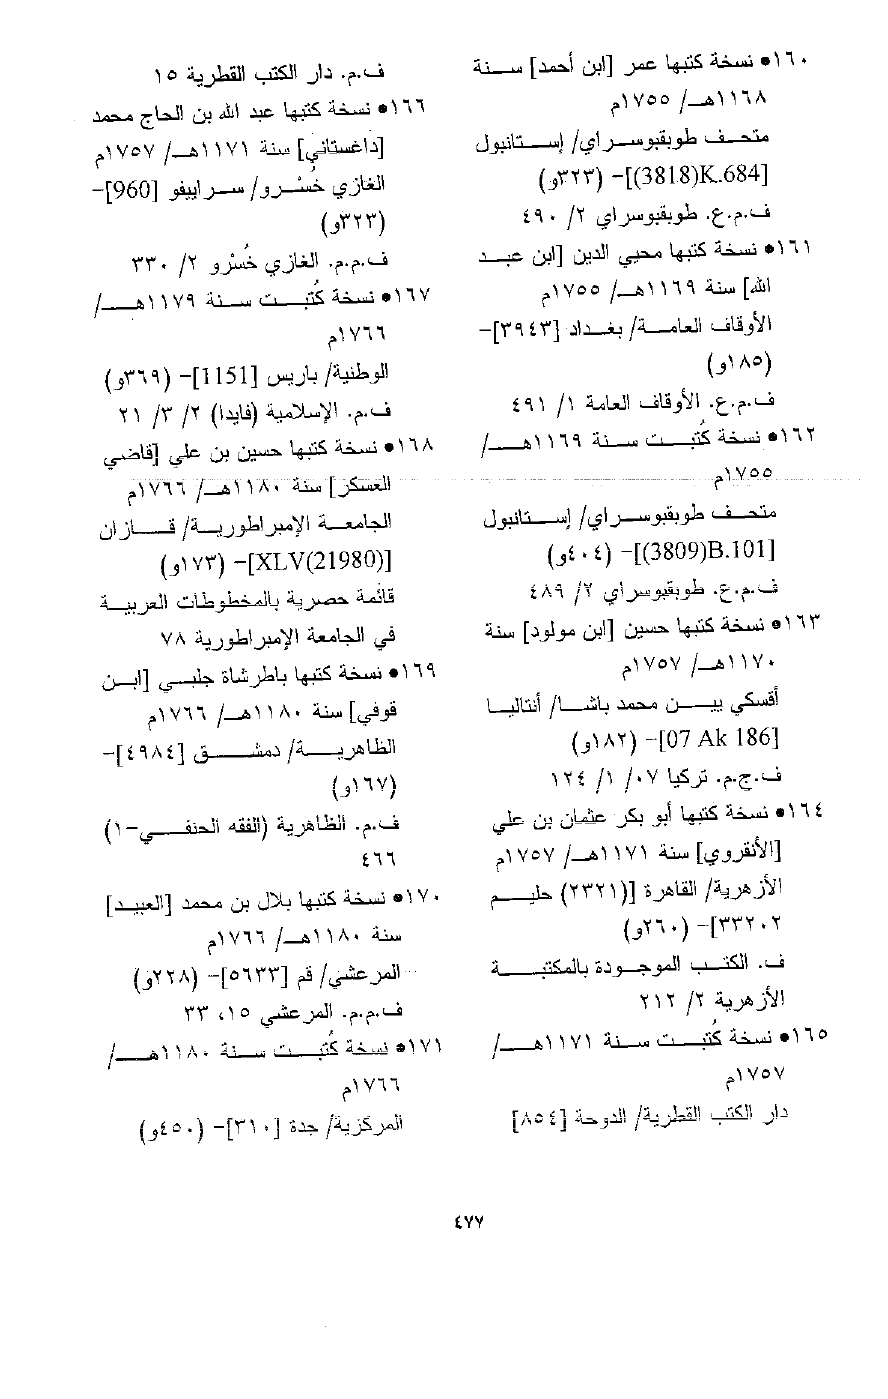 ١٦٠• نسخة كتبها عمر [ابن أحمد] سنة
١١٦٨هـ/ ١٧٥٥م
متحف طوبقبوسراي/ إستانبول
[3818)K.684)]- (٣٢٣و)
ف.م.ع. طوبقبوسراي ٢/ ٤٩٠
١٦١• نسخة كتبها محيي الدين [ابن عبد
الله] سنة ١١٦٩هـ/ ١٧٥٥م
الأوقاف العامة/ بغداد [٣٩٤٣]-
(١٨٥و)
ف.م.ع. الأوقاف العامة ١/ ٤٩١
١٦٢• نسخة كُتبت سنة ١١٦٩هـ/
١٧٥٥م
متحف طوبقبوسراي/ إستانبول
[3809)B.101)]- (٤٠٤و)
ف.م.ع. طوبقبوسراي ٢/ ٤٨٩
١٦٣• نسخة كتبها حسين [ابن مولود] سنة
١١٧٠هـ/ ١٧٥٧م
أقسكي يين محمد باشا/ أنتاليا
[07 Ak 186]- (١٨٢و)
ف.ج.م. تركيا ٠٧/ ١/ ١٢٤
١٦٤• نسخة كتبها أبو بكر عثمان بن علي
[الأنقروي] سنة ١١٧١هـ/ ١٧٥٧م
الأزهرية/ القاهرة [(٢٣٢١) حليم
٣٣٢٠٢]- (٢٦٠و)
ف. الكتب الموجودة بالمكتبة
الأزهرية ٢/ ٢١٢
١٦٥• نسخة كُتبت سنة ١١٧١هـ/
١٧٥٧م
دار الكتب القطرية/ الدوحة [٨٥٤]
ف.م. دار الكتب القطرية ١٥
١٦٦• نسخة كتبها عبد الله بن الحاج محمد
[داغستاني] سنة ١١٧١هـ/ ١٧٥٧م
الغازي خُسْرو/ سراييفو [960]-
(٣٢٣و)
ف.م.م. الغازي خُسْرو ٢/ ٣٣٠
١٦٧• نسخة كُتبت سنة ١١٧٩هـ/
١٧٦٦م
الوطنية/ باريس [1151]- (٣٦٩و)
ف.م. الإسلامية (فايدا) ٢/ ٣/ ٢١
١٦٨• نسخة كتبها حسين بن علي [قاضي
العسكر] سنة ١١٨٠هـ/ ١٧٦٦م
الجامعة الإمبراطورية/ قازان
[XLV(21980)]- (١٧٣و)
قائمة حصرية بالمخطوطات العربية
في الجامعة الإمبراطورية ٧٨
١٦٩• نسخة كتبها باطرشاة جلبي [ابن
قوفي] سنة ١١٨٠هـ/ ١٧٦٦م
الظاهرية/ دمشق [٤٩٨٤]-
(١٦٧و)
ف.م. الظاهرية (الفقه الحنفي-١)
٤٦٦
١٧٠• نسخة كتبها بلال بن محمد [العبيد]
سنة ١١٨٠هـ/ ١٧٦٦م
المرعشي/ قم [٥٦٣٣]- (٢٢٨و)
ف.م.م. المرعشي ١٥، ٣٣
١٧١• نسخة كُتبت سنة ١١٨٠هـ/
١٧٦٦م
المركزية/ جدة [٣١٠]- (٤٥٠و)
٤٧٧